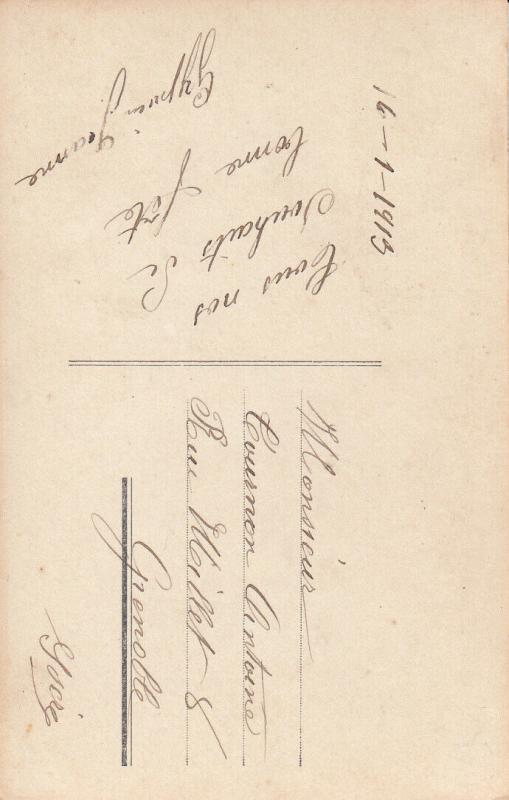 16-1-1913
Tous nos
Souhaits de
bonne fête
Jeanne
Monsieur
Cournon Antoine
Rue Millet 8
Grenoble
Isère